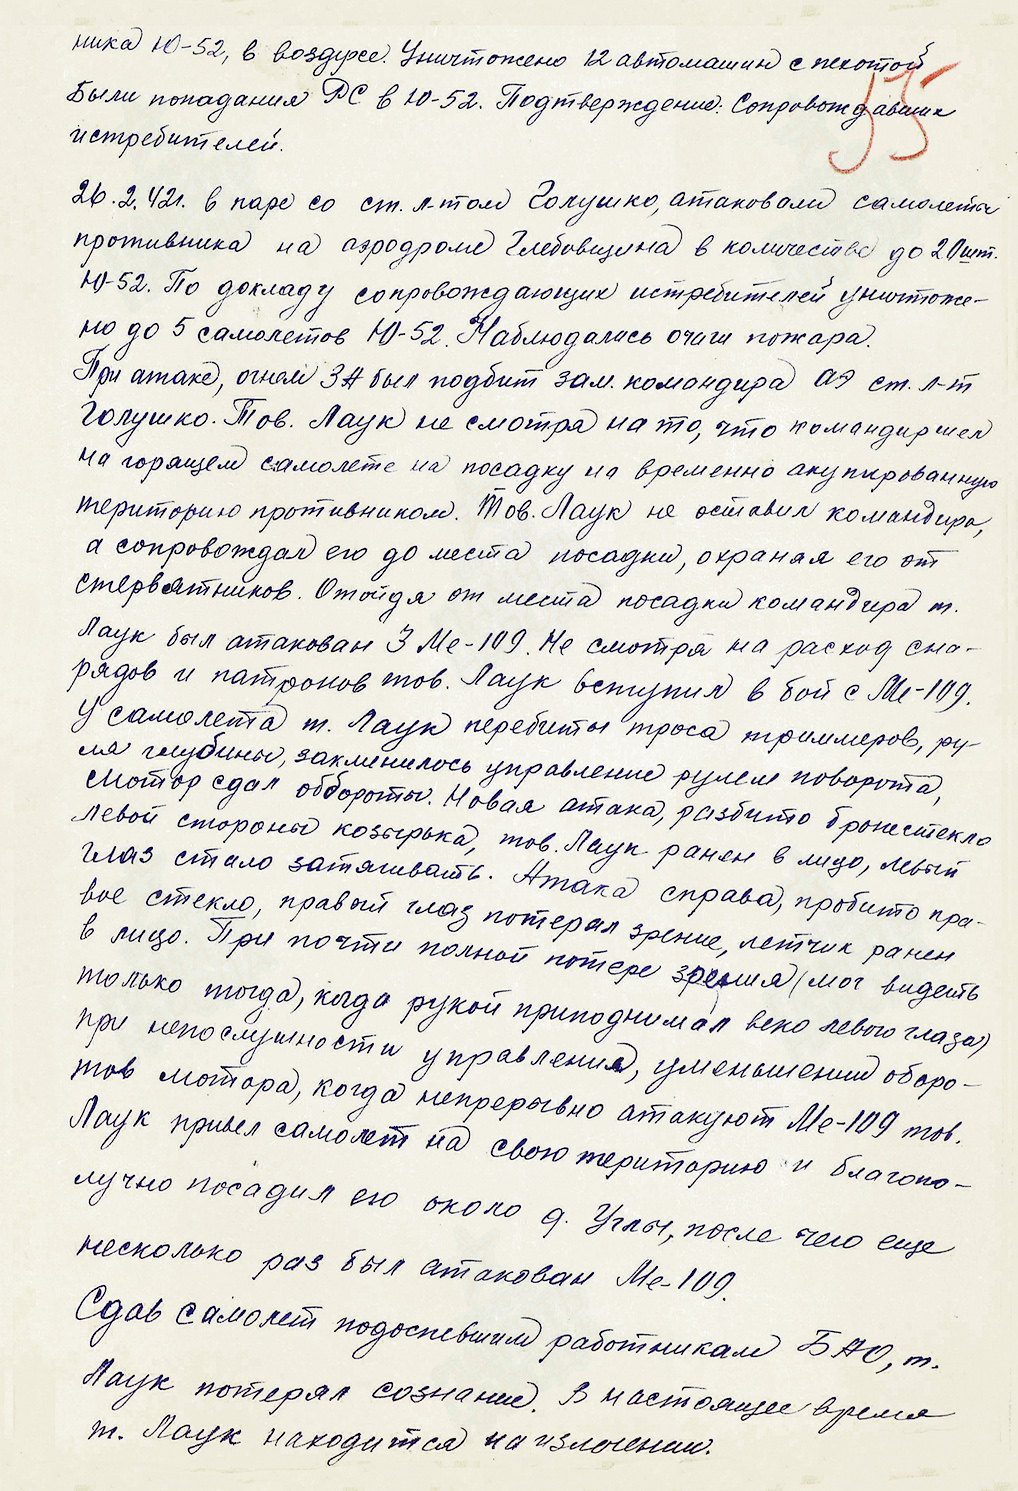 ника Ю-52, в воздухе. Уничтожено 12 автомашин с пехотой
55
Были попадания РС в Ю-52. Подтверждение: Сопровождавших
истребителей.
26.2.42г. в паре со ст. л-том Голушко, атаковали самолеты
противника на аэродроме Глебовщина в количестве до 20шт.
Ю-52. По докладу сопровождающих истребителей уничтоже-
но до 5 самолетов Ю-52. Наблюдались очаги пожара.
При атаке, огнем ЗА был подбит зам. командира АЭ ст. л-т
Голушко. Тов. Лаук не смотря на то, что командир шел
на горящем самолете на посадку на временно акупированную
територию противником. Тов. Лаук не оставил командира,
а сопровождал его до места посадки, охраняя его от
стервятников. Отойдя от места посадки командира т.
Лаук был атакован 3 Ме-109. Не смотря на расход сна-
рядов и патронов тов. Лаук вступил в бой с Ме-109.
У самолета т. Лаук перебиты троса триммеров, ру-
ля глубины, заклинилось управление рулем поворота,
мотор сдал обороты. Новая атака, разбито бронестекло
левой стороны козырька, тов. Лаук ранен в лицо, левый
глаз стало затягивать. Атака справа, пробито пра-
вое стекло, правый глаз потерял зрение, летчик ранен
в лицо. При почти полной потере зрения (мог видеть
только тогда, когда рукой приподнимал веко левого глаза)
при непослушности управления, уменьшении оборо-
тов мотора, когда непрерывно атакуют Ме-109 тов.
Лаук привел самолет на свою територию и благопо-
лучно посадил его около д. Углы, после чего еще
несколько раз был атакован Ме-109.
Сдав самолет подоспевшим работникам БАО, т.
Лаук потерял сознание. В настоящее время
т. Лаук находится на излечении.